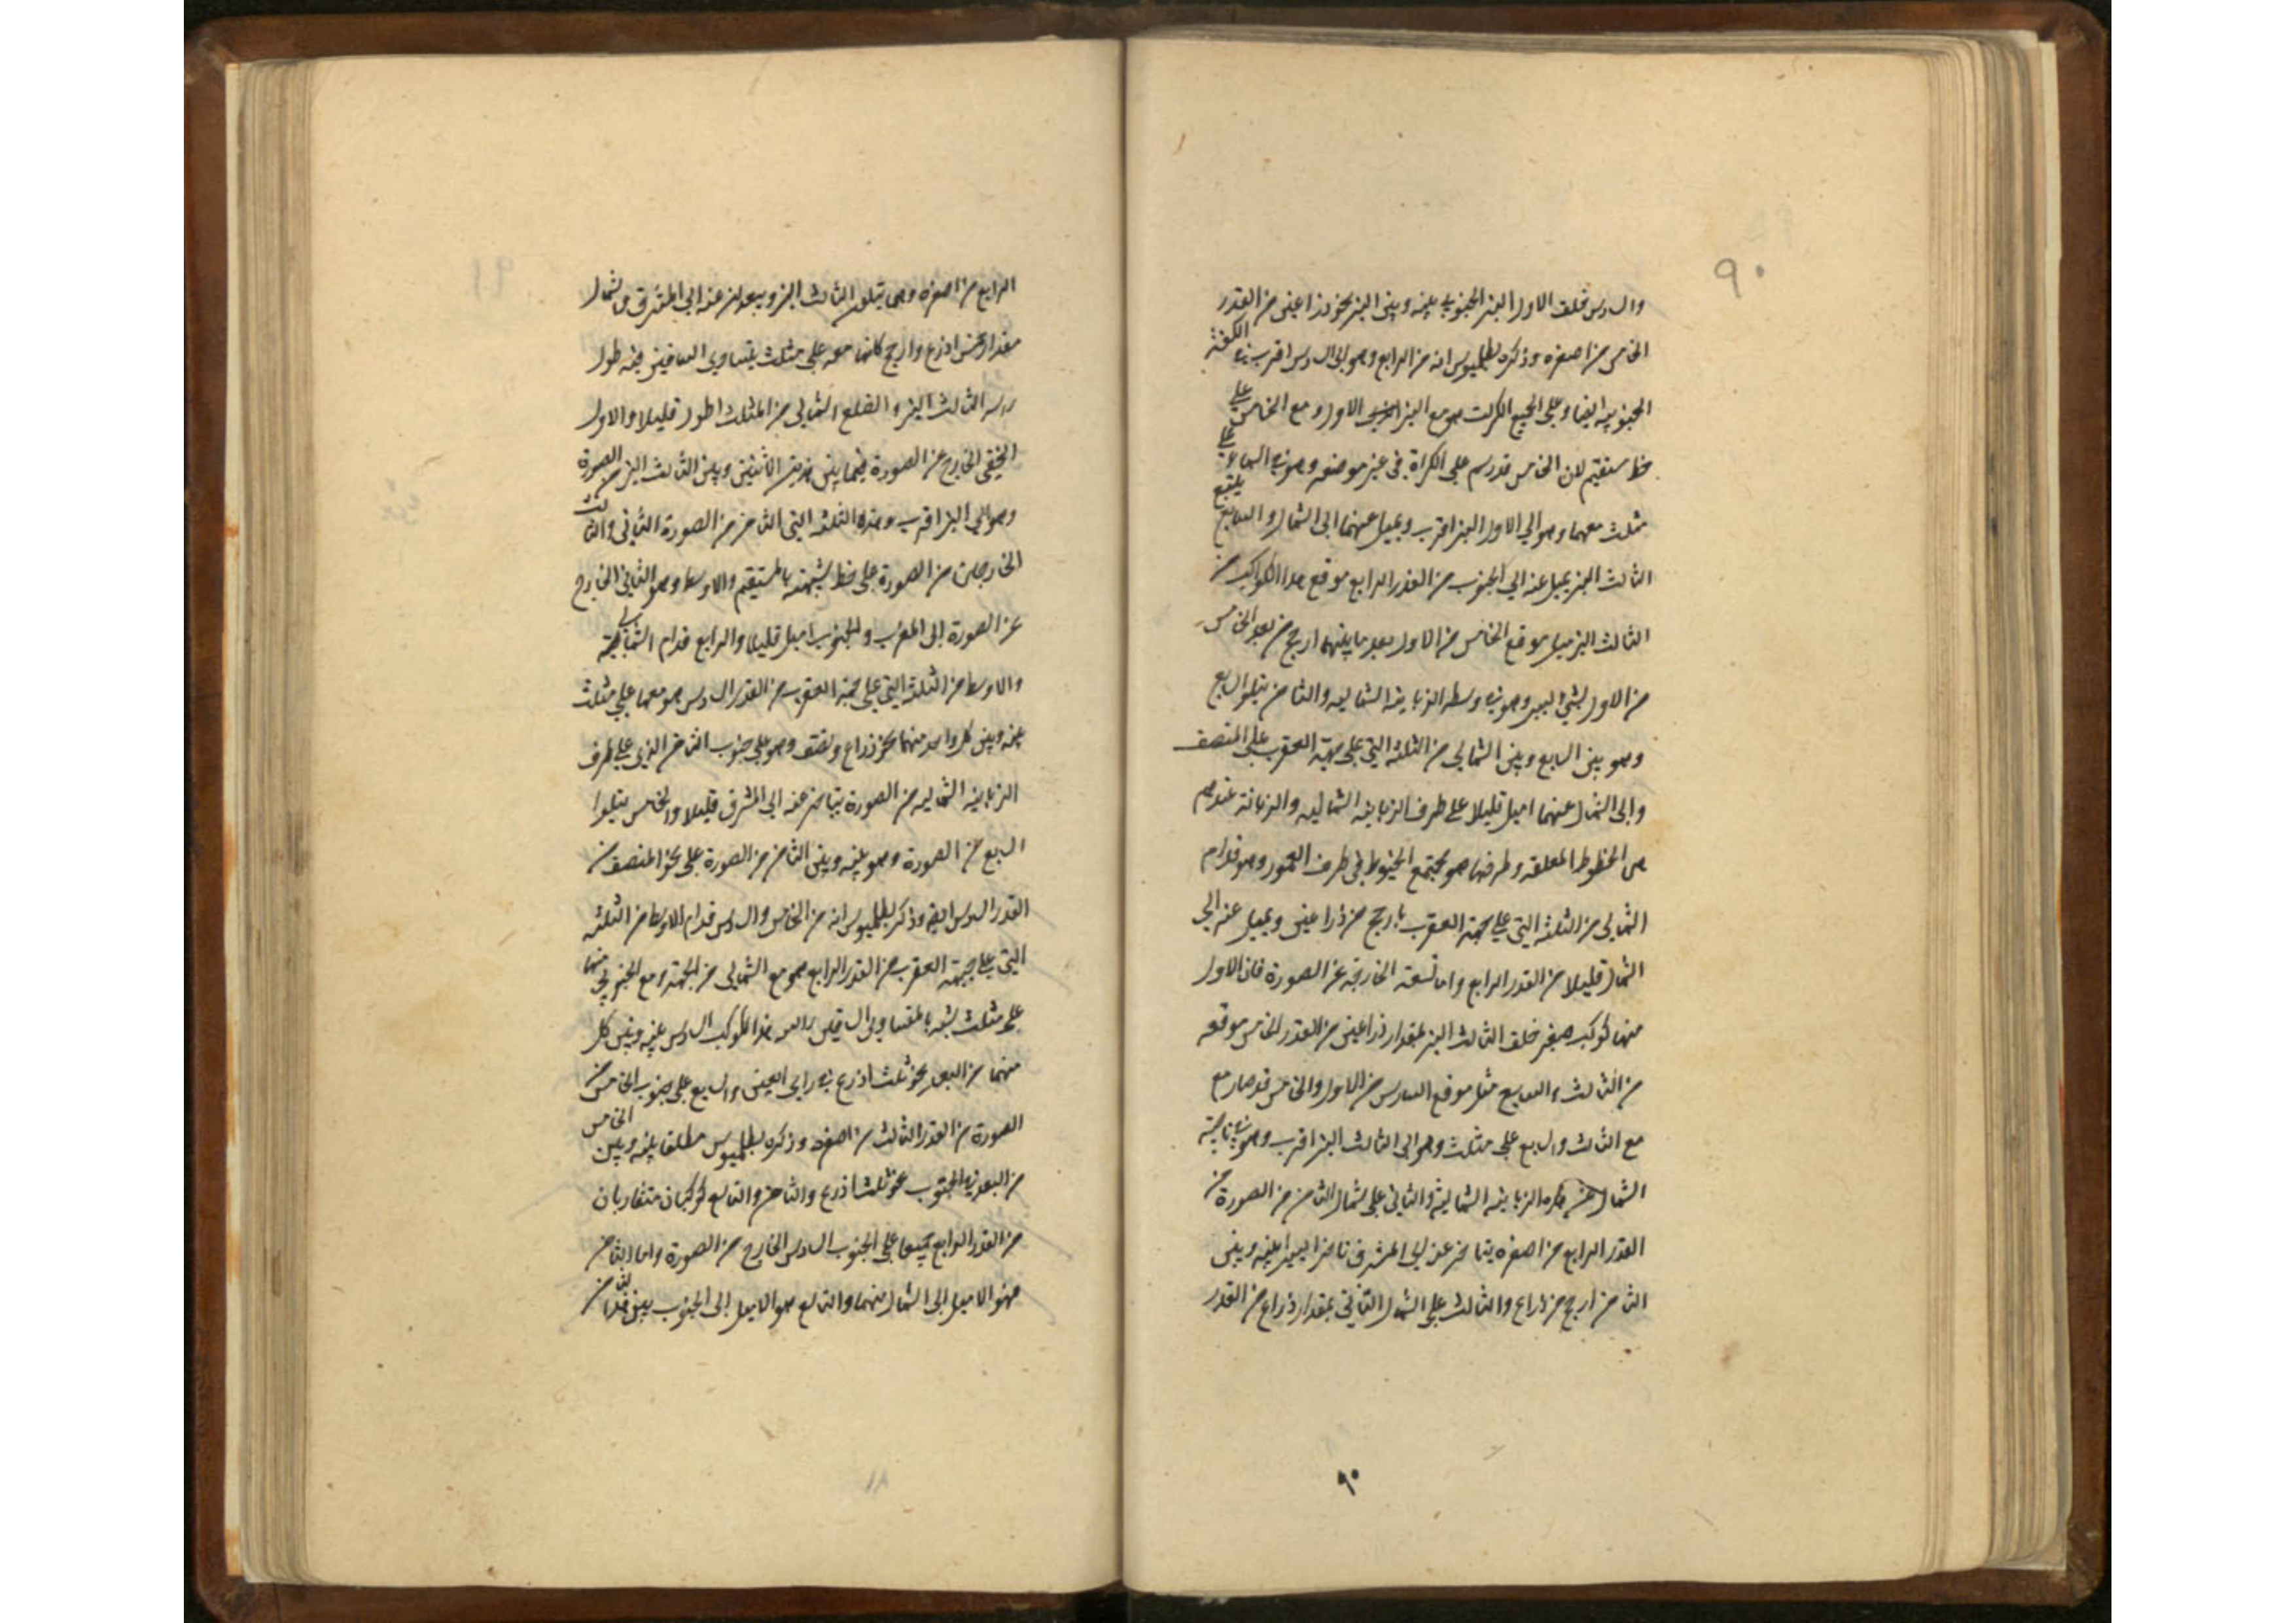 ٩٠
والسادس خلف الاول النير الجنوبي بينه وبين النير نحو ذراعين من القدر
الخامس من اصغره وذكره بطلميوس انه من الرابع وهو الى السادس اقرب الكفة
الجنوبية ايضا وعلى جميع الكرات هو مع النير الاول ومع الخامس على
خط مستقيم لان الخامس قد رسم على الكراة في غير موضعه وهو في السماء على
مثلث معهما وهو الى الاول النير اقرب ويميل عنهما الى الشمال والسابع يتبع
الثالث النير يميل عنه الى الجنوب من القدر الرابع موقع هذا الكواكب من
الثالث النير مثل موقع الخامس من الاول بعد ما بينهما ارجح من بعد الخامس
من الاول بشئ اليسير وهو في وسط الزباينه الشماليه والثامن يتلو السابع
وهو بين السابع وبين الشمالي من الثلثه التي على جبهة العقرب على المنصف
والى الشمال عنهما اميل قليلا على طرف الزباينه الشماليه والزبانة عندهم
هي الخطوط المعلقه وطرفها هو مجتمع الخيوط في طرف العمود وهو قدام
الشمالي من الثلثه التي على جبهة العقرب بارجح من ذراعين ويميل عنه الى
الشمال قليلا من القدر الرابع واما تسعة الخارجه عن الصورة فان الاول
منها كوكب صغير خلف الثالث النير بمقدار ذراعين من القدر الخامس موقعه
من الثالث والسابع مثل موقع السادس من الاول والخامس قد صار مع
مع الثالث والسابع على مثلث وهو الى الثالث النير اقرب وهو في ناحية
الشمال عن الزباينه الشمالية والثاني على شمال الثامن من الصورة من
القدر الرابع من اصغره يتاخر عنه الى المشرق تاخرا يسيرا بينه وبين
الثامن ارجح من ذراع والثالث على الشمال الثاني بمقدار ذراع من القدر
٩٠
٩١
الرابع من اصغره وهما يتلوان الثالث النير ويبعدان عنه الى المشرق والشمال
مقدار خمس اذرع وارجح كانها معه على مثلث يتساوى الساقين فيه طول
راسه الثالث النير والضلع الشمالي من المثلث اطول قليلا والاول
الخفي الخارج عن الصورة فيما بين هذين الاثنين وبين الثالث النير من الصورة
وهو الى النير اقرب وهذه الثلثه التي الثامن من الصورة الثاني والثالث
الخارجان من الصورة على خط يشبهه بالمستقيم والاوسط وهو الثاني الخارج
عن الصورة الى المغرب والجنوب اميل قليلا والرابع قدام الشمالي
والاوسط من الثلثة التي على جبهة العقرب من القدر السادس هو معهما على مثلث
بينه وبين كل واحد منهما نحو ذراع ونصف وهو على جنوب الثامن الذي على طرف
الزباينه الشماليه من الصورة يتاخر عنه الى المشرق قليلا والخامس يتلوا
السابع من الصورة وهو بينه وبين الثامن من الصورة على نحو المنصف من
القدر السادس ايضا وذكر بطلميوس انه من الخامس والسادس قدام الاوسط من الثلثه
التي على جبهة العقرب من القدر الرابع هو مع الشمالي من الجبهة ومع الجنوبي منها
على مثلث يشبه بالمتساوي الساقين راس هذا الكوكب السادس بينه وبين كل
منهما من البعد نحو ثلث اذرع في راى العين والسابع على جنوب الخامس من
الصورة من القدر الثالث من اصغره وذكره بطلميوس مطلقا بينه وبين الخامس
من البعد في الجنوب نحو ثلث اذرع والثامن والتاسع كوكبان متقاربان
من القدر الرابع جميعا على الجنوب السادس الخارج من الصورة واما الثامن
فهو الاميل الى الشمال منهما والتاسع هو الاميل الى الجنوب بين الثامن